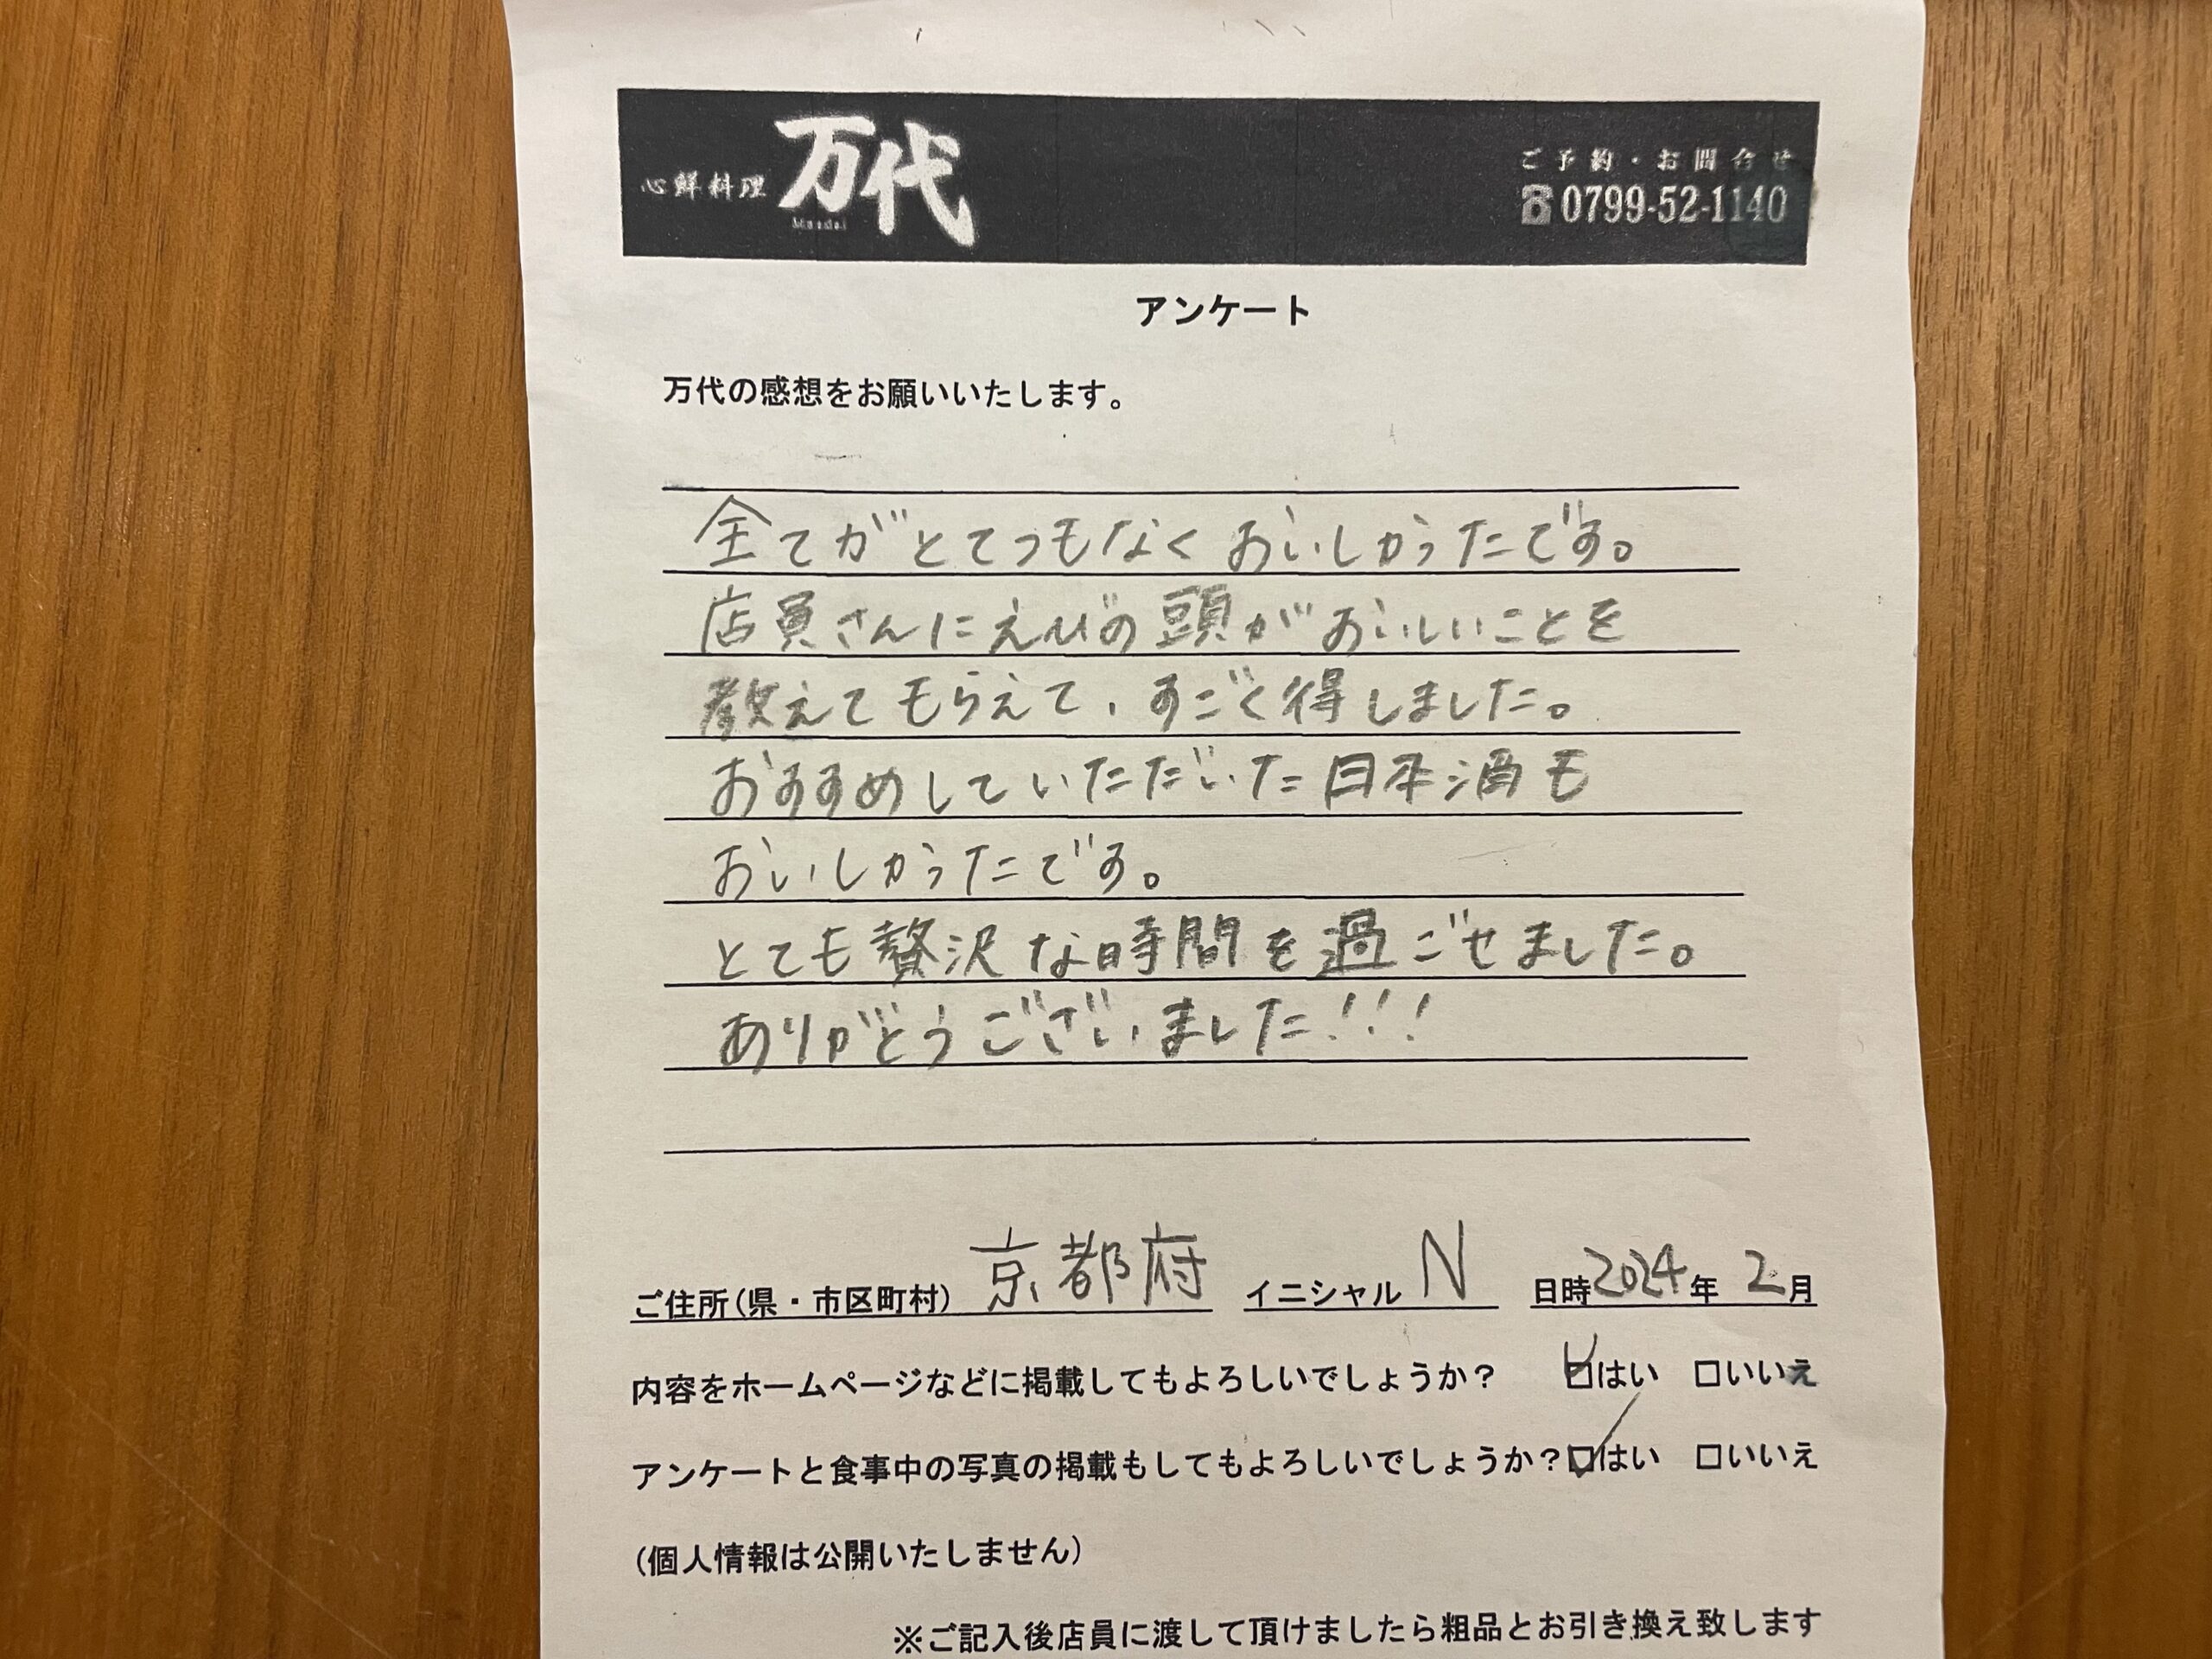 心鮮料理 万代
Mandai
ご予約・お問合せ
☎0799-52-1140
アンケート
万代の感想をお願いいたします。
全てがとてつもなくおいしかったです。
店員さんにえびの頭がおいしいことを
教えてもらえて、すごく得しました。
おすすめしていただいた日本酒も
おいしかったです。
とても贅沢な時間を過ごせました。
ありがとうございました!!!
ご住所(県・市区町村) 京都府 イニシャル N 日時2024年 2月
内容をホームページなどに掲載してもよろしいでしょうか? ☑はい □いいえ
アンケートと食事中の写真の掲載もしてもよろしいでしょうか?☑はい □いいえ
(個人情報は公開いたしません)
※ご記入後店員に渡して頂けましたら粗品とお引き換え致します